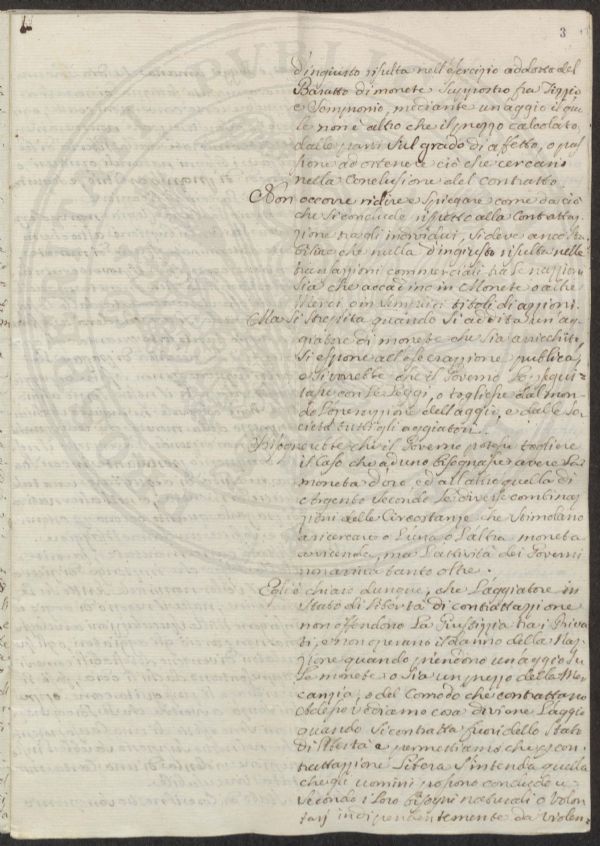 3
d'ingiusto risulta nell'esercizio addotto del
Baratto di monete supposto fra Tizzio
e Sempronio, mediante un aggio il qua
le non è altro che il prezzo calcolato,
dalle parti sul grado di affetto, o pas
sione ad ottenere ciò che cercano
nella conclusione del contratto.
Non occorre ridire e spiegare come da ciò
che si conclude rispetto alla contrattaz
zione tra gli individui, si deve anco sta
bilire che nulla d'ingiusto risulta nelle
transazioni commerciali tra le nazzioni
sia che accadino in Monete o altre
Merci, o in semplici titoli di azzioni.
Ma si strepita quando si addita un ag
giatore di monete che sia aricchito,
si espone all'esecrazzione publica,
e si vorebbe che il Governo lo sequi=
tasse con le Leggi, o togliesse dal mon
do l'operazzione dell'aggio, e dalle So
cietà tutti gli aggiatori.
che il Governo potesse togliere
il caso che ad uno bisognasse avere la
moneta d'oro, ed all'altro quella di
Argento secondo le diverse combinaz
zioni delle Circostanze che stimolano
a ricercare o l'una o l'altra moneta
a vicenda, ma l'attività dei Governi
non arriva tanto oltre.
Egli è chiaro dunque, che l'aggiatore in
stato di libertà di contrattazzione
non offendono la Giustizzia tra i Priva
ti, e non operano il danno della Naz
zione quando prendono un aggio su
le monete o sia un prezzo della Mer
canzia, o del Comodo che contrattano
vediamo cosa diviene l'aggio
quando si contratta fuori dello stato
di libertà e permettiamo che p con
trattazzione libera s'intenda quella
che gli uomini possono concludere
secondo i loro bisogni naturali o volon
tarj indipendentemente da violen=